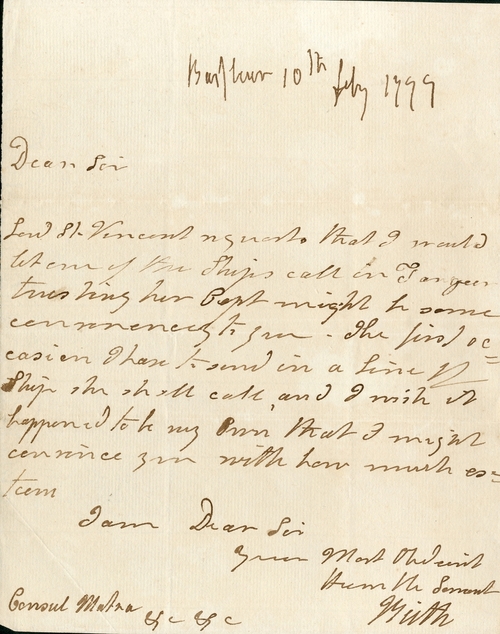 Barfleur 10th feby 1799
Dear Sir
Lord St. Vincent requests that I would
let one of the Ships call in Tangier
trusting her Capt might be some
convenience to you - The first oc=
casion I have to send in a Line of
Ship she shall call, and I wish it
happened to be my Own, that I might
convince you with how much es=
teem
I am Dear Sir
your Most Obedient
Humble Servant
Consul Matra &c &c